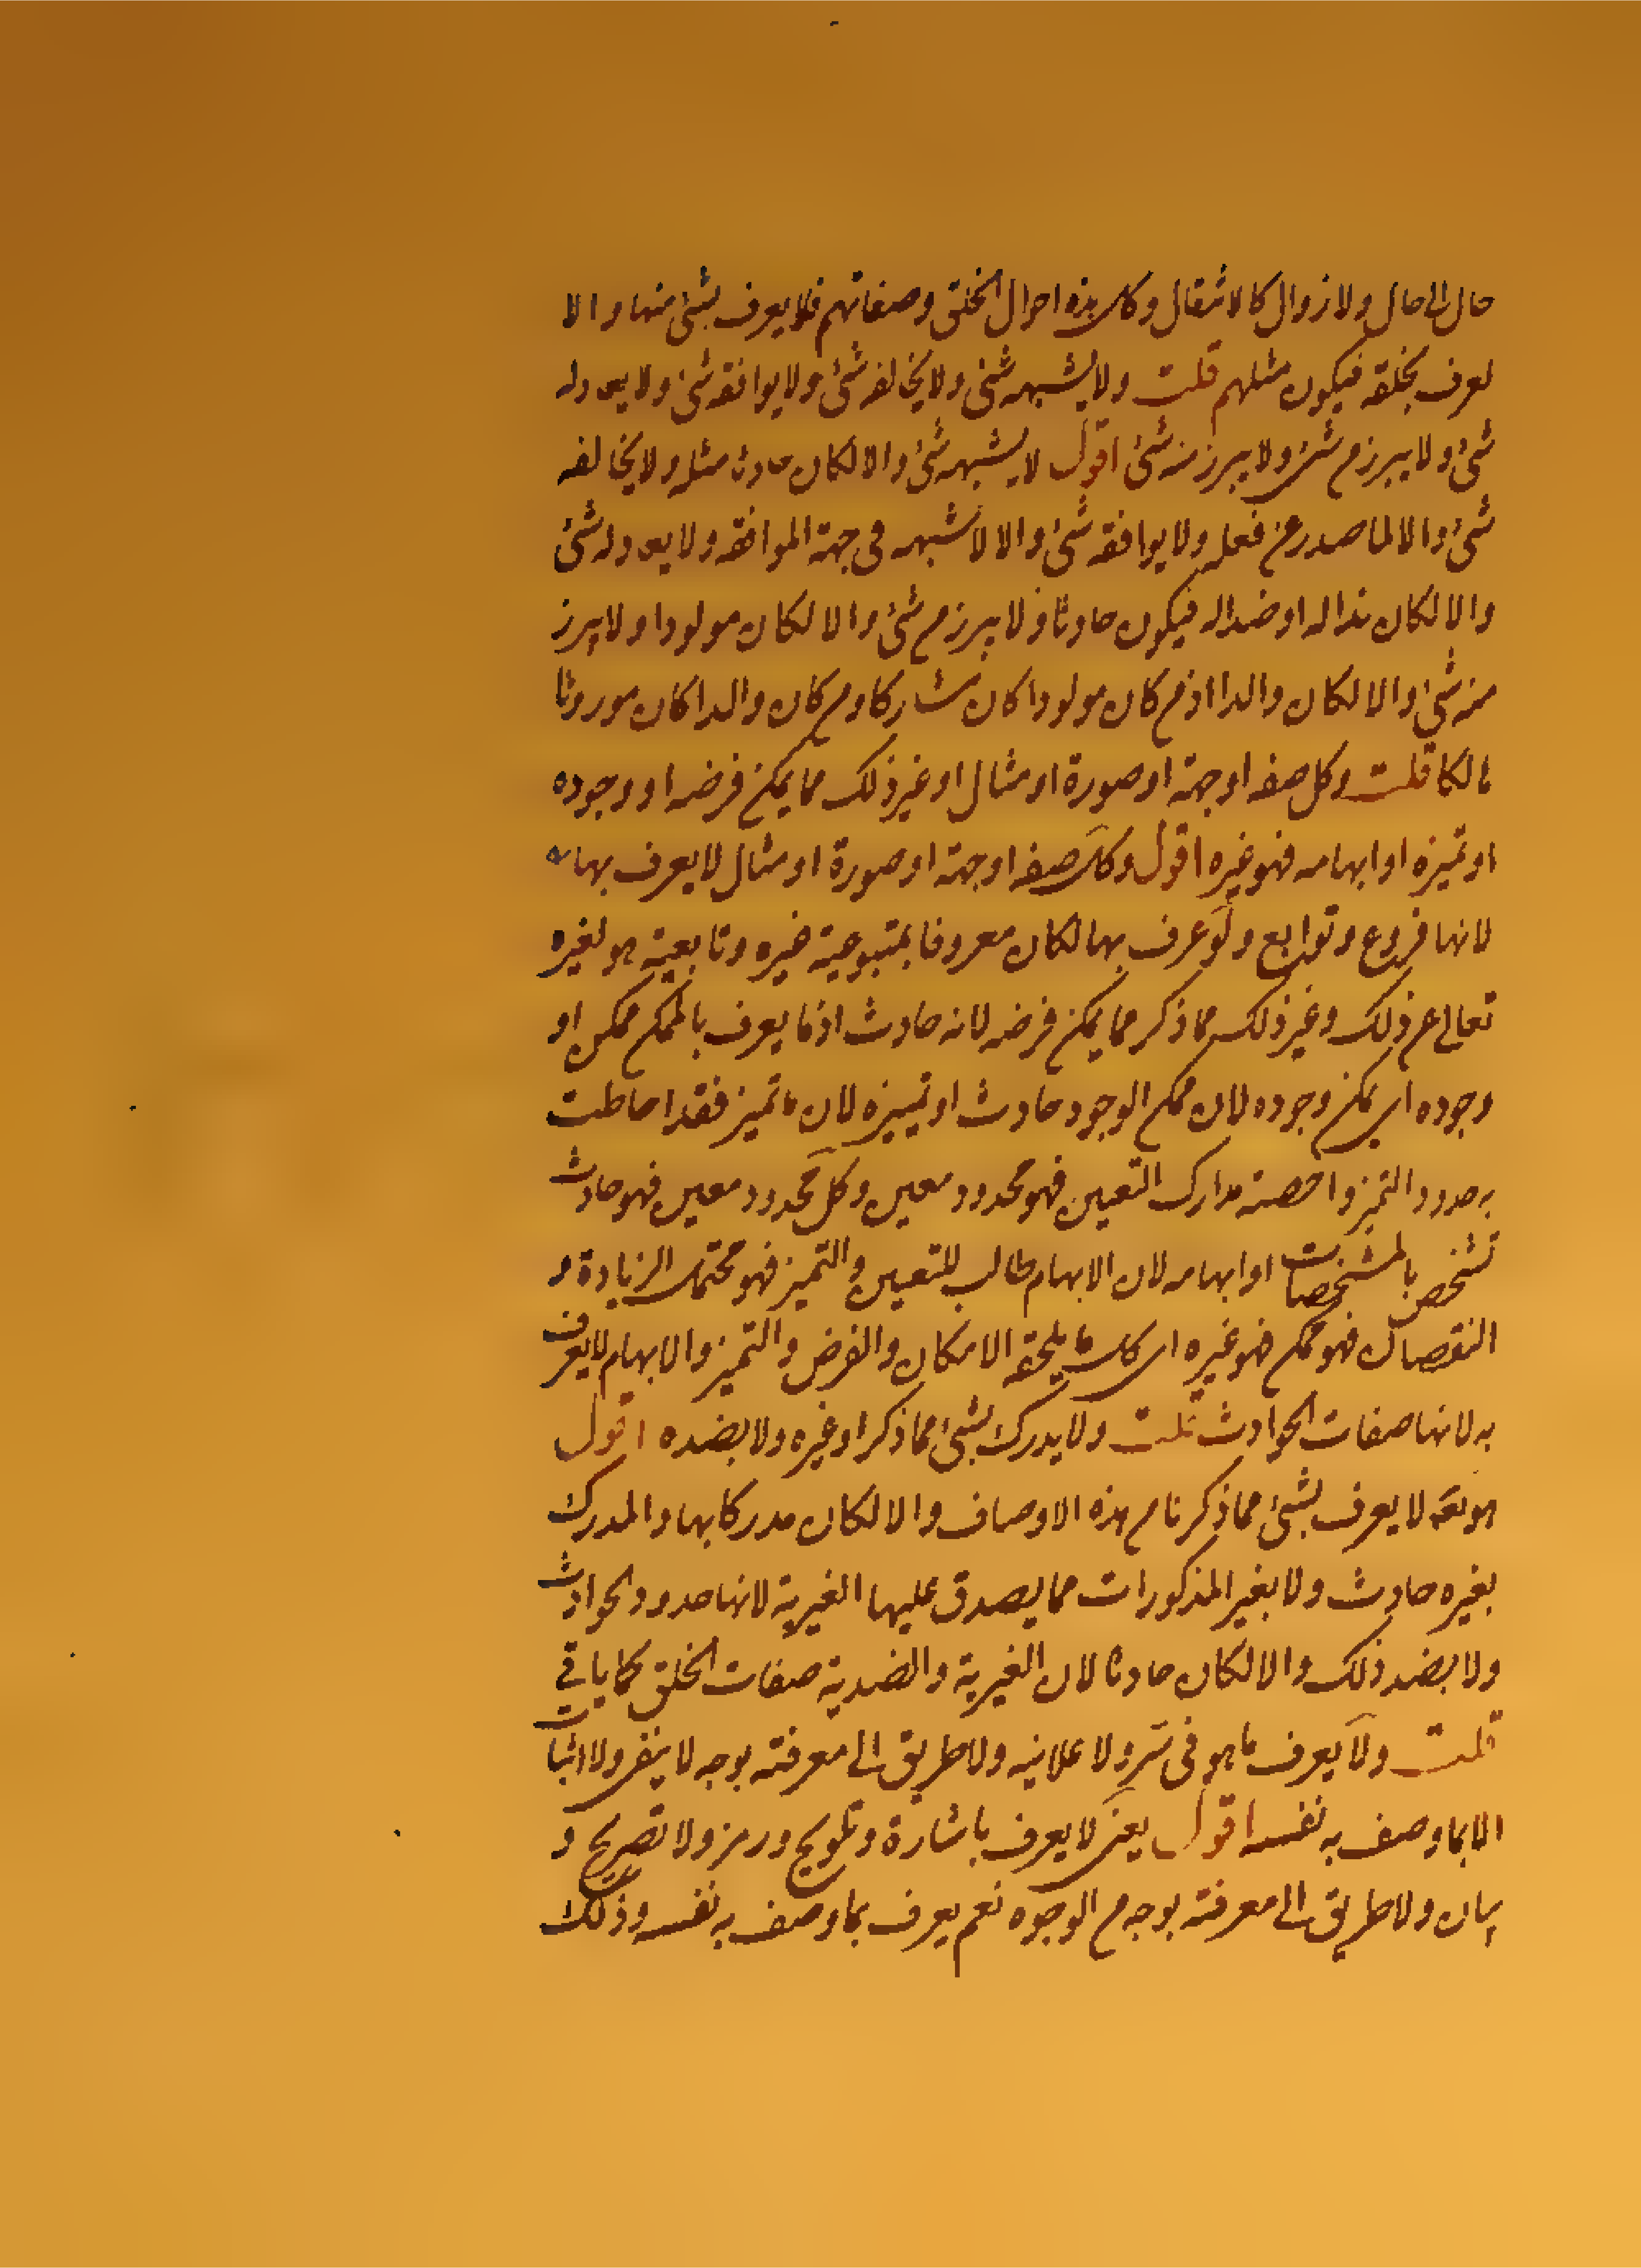 حال الى حال ولا زوال كالانتقال وكل هذه احوال الخلق وصفاتهم فلا يعرف بشئ منها والا
لعرف بخلقه فيكون مثلهم قلت ولا يشبهه شئ ولا يخالفه شئ ولا يوافقه شئ ولا يعادله
شئ ولا يبرز من شئ ولا يبرز منه شئ اقول لا يشبهه شئ والا لكان حادثا مثله ولا يخالفه
شئ والا لما صدر عن فعله ولا يوافقه شئ والا لاشبهه فى جهة الموافقه ولا يعادله شئ
والا لكان ندا له او ضدا له فيكون حادثا ولا يبرز من شئ والا لكان مولودا ولا يبرز
منه شئ والا لكان والدا اذ من كان مولودا كان مشاركا ومن كان والدا كان موروثا
هالكا قلت وكل صفه او جهة او صورة او مثال او غير ذلك مما يمكن فرضه او وجوده
او تميزه او ابهامه فهو غيره اقول وكل صفه او جهة او صورة او مثال لا يعرف بها
لانها فروع وتوابع ولو عرف بها لكان معروفا بمتبوعية غيره وتابعية هو لغيره
تعالى عن ذلك وغير ذلك مما ذكر مما يمكن فرضه لانه حادث اذ ما يعرف بالممكن ممكن او
وجوده اى يمكن وجوده لان ممكن الوجود حادث او تمييزه لان ما تميز فقد احاطت
به حدود التميز واحصته مدارك التعيين فهو محدود معين وكل محدود معين فهو حادث
تشخص بالمشخصات او ابهامه لان الابهام طالب للتعيين والتميز فهو محتمل الزيادة و
النقصان فهو ممكن فهو غيره اى كل ما يلحقه الامكان والفرض والتميز والابهام لا يعرف
به لانها صفات الحوادث قلت ولا يدرك بشئ مما ذكر او غيره ولا بضده اقول
هو تعه لا يعرف بشئ مما ذكرنا من هذه الاوصاف والا لكان مدركا بها والمدرك
بغيره حادث ولا بغير المذكورات مما يصدق عليها الغيرية لانها حدود الحوادث
ولا بضد ذلك والا لكان حادثا لان الغيرية والضدية صفات الخلق كما ياتى
قلت ولا يعرف ما هو فى سر ولا علانيه ولا طريق الى معرفته بوجه لا بنفى ولا اثبات
الا بما وصف به نفسه اقول يعنى لا يعرف باشارة وتلويح ورمز ولا تصريح و
بيان ولا طريق الى معرفته بوجه من الوجوه نعم يعرف بما وصف به نفسه وذلك